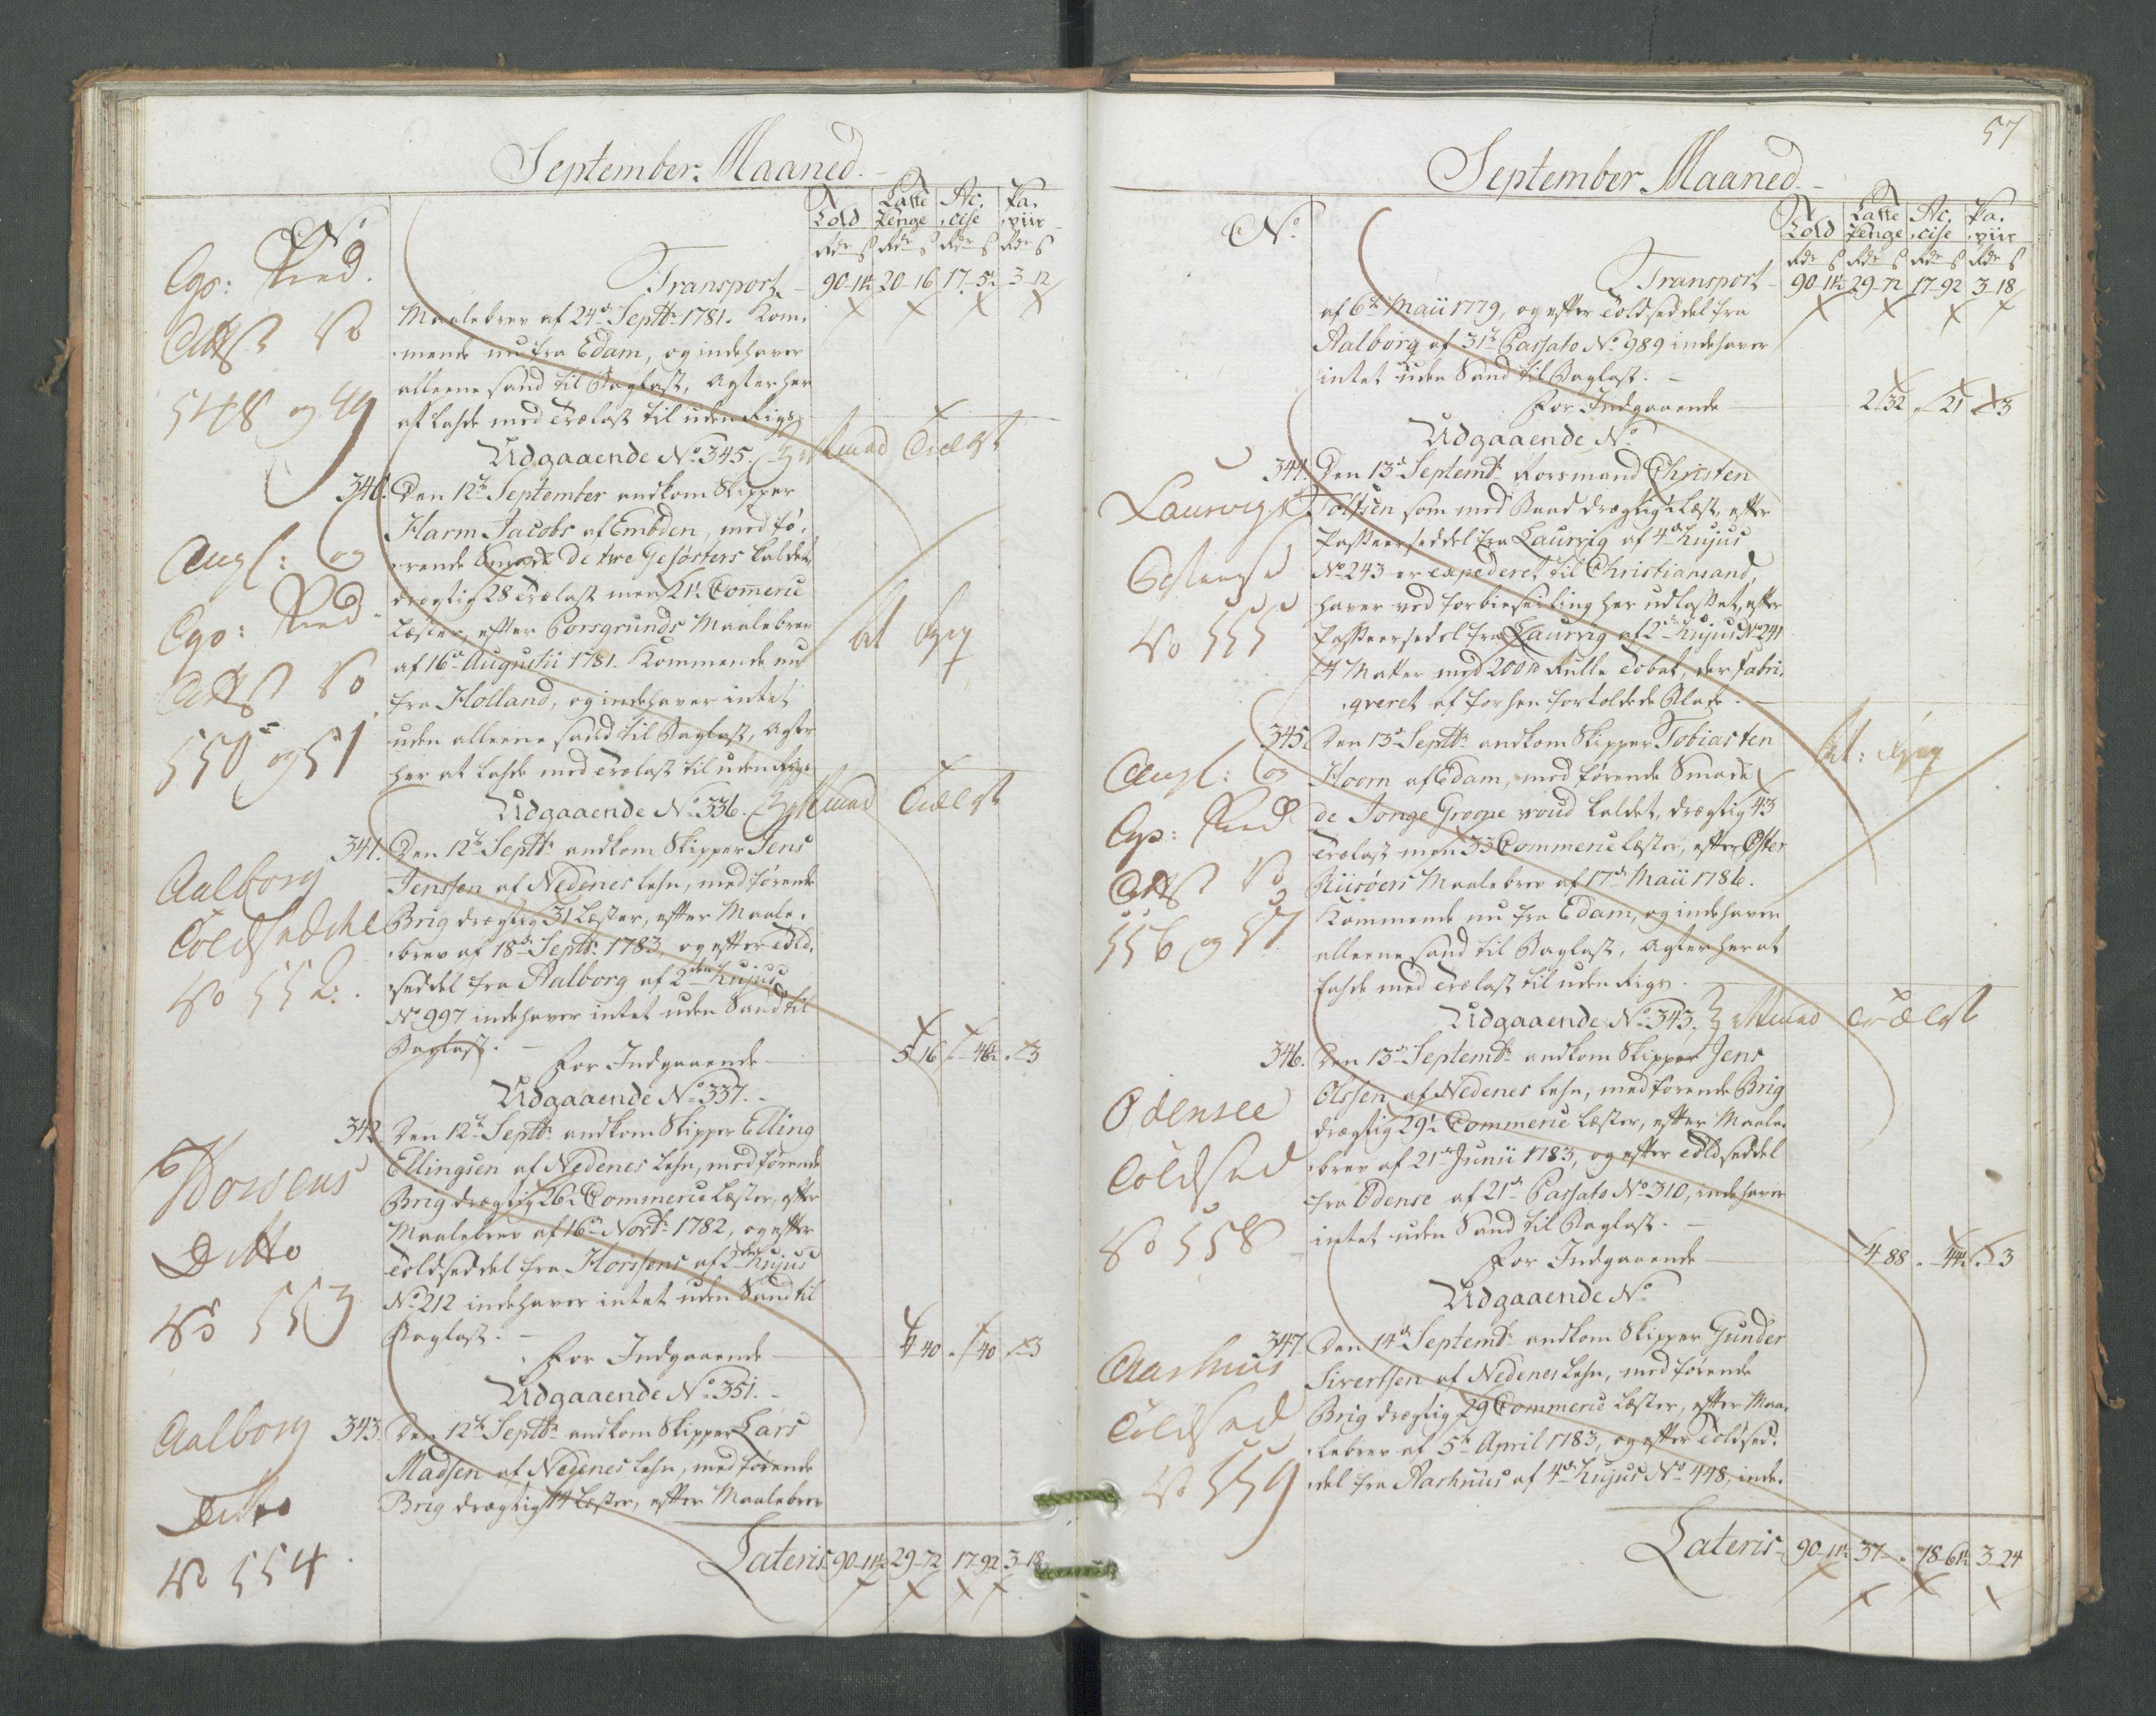 September: Maaned.
No
Told
Laste Penge
Ac. cise
Pa. piir
Rdr ß Rdr ß Rdr ß Rdr ß
Transport 90-11½ 20-16 17-5½ 3-12
Maalebrev af 24de Septbr 1781. Kom-
mende nu fra Edam, og indehaver
alleene Sand til Baglast, agter her
at lade med Trælast til uden Rigs
Udgaaende No 345.
Attst No
548 og 49
340. Den 12te September ankom Skipper
Harm Jacobs af Embden, med fø-
rende Smack de twe Gesösters kaldet,
drægtig 28 Trælast men 21½ Commerce
Læster, efter Porsgrunds Maalebrev
af 16de Augustii 1781. Kommende nu
fra Holland, og indehaver intet
uden alleene Sand til Baglast, agter
her at lade med Trælast til uden Rigs
Udgaaende No 336.
Engl: og
Attst No
550 og 51
341. Den 12te Septbr ankom Skipper Jens
Jenssen af Nedenes Lehn, med førende
Brig drægtig 31 Læster, efter Maale-
brev af 18de Septbr 1783, og efter Told-
seddel fra Aalborg af 2den Hujus
No 997 indehaver intet uden Sand til
Baglast.
For Indgaaende 5 16 - 46½ - 3
Udgaaende No 337.
Aalborg
Toldseddel
No 552.
342. Den 12te Septbr ankom Skipper Elling
Ellingsen af Nedenes Lehn, med førende
Brig drægtig 26½ Commerce Læster, efter
Maalebrev af 16de Novbr 1782, og efter
Toldseddel fra Horsens af 2den Hujus
No 212 indehaver intet uden Sand til
Baglast.
For Indgaaende 4 40 - 40 - 3
Udgaaende No 351.
Horsens
Ditto
No 553
343. Den 12te Septbr ankom Skipper Lars
Madsen af Nedenes Lehn, med førende
Brig drægtig 14 Læster, efter Maalebrev
Aalborg
Ditto
No 554
Lateris 90-11½ 29-72 17-92 3-18
57
September Maaned.
No
Told
Laste Penge
Ac. cise
Pa. piir
Rdr ß Rdr ß Rdr ß Rdr ß
Transport 90-11½ 29-72 17-92 3-18
af 6te Maii 1779, og efter Toldseddel fra
Aalborg af 31te Passato No 989 indehaver
intet uden Sand til Baglast.
For Indgaaende 2 32 - 21 - 3
Udgaaende No
344. Den 13de Septembr Forsmand Christen
Tolfsen som med Baad drægtig 2 Læst, efter
Passeerseddel fra Laurvig af 4de Hujus
No 243 er expederet til Christiansand,
haver ved forbieseiling her udlosset, efter
Passeersedel fra Laurvig af 2den Hujus No 241
4 Matter med 200 lb Rulle Tobak, der fabri-
qveret af forhen fortoldede Blade.
Laurvigs
No 555
345. Den 13de Septbr ankom Skipper Tobias ten
Hoorn af Edam, med førende Smack
de Jonge Groope woud kaldet, drægtig 43
Trælast men 33 Commerce Læster, efter Øster
Riisøers Maalebrev af 17de Maii 1786.
Kommende nu fra Edam, og indehaver
alleene Sand til Baglast, agter her at
lade med Trælast til uden Rigs.
Udgaaende No 343.
Engl: og
Attst No
556 og 57
346. Den 13de Septembr ankom Skipper Jens
Olssen af Nedenes Lehn, med førende Brig
drægtig 29½ Commerce Læster, efter Maale-
brev af 21de Junii 1783, og efter Toldseddel
fra Odense af 21de Passato No 310, indehaver
intet uden Sand til Baglast.
For Indgaaende 4 88 - 44½ - 3
Udgaaende No
Odensee
Toldsed
No 558
347. Den 14de Septembr ankom Skipper Gunder
Sivertsen af Nedenes Lehn, med førende
Brig drægtig 29 Commerce Læster, efter Maa-
lebrev af 5te April 1783, og efter Toldsed-
del fra Aarhuus af 4de Hujus No 448, inde-
Aarhuus
Toldsed
No 559
Lateris 90-11½ 37 - . 18-61½ 3-24